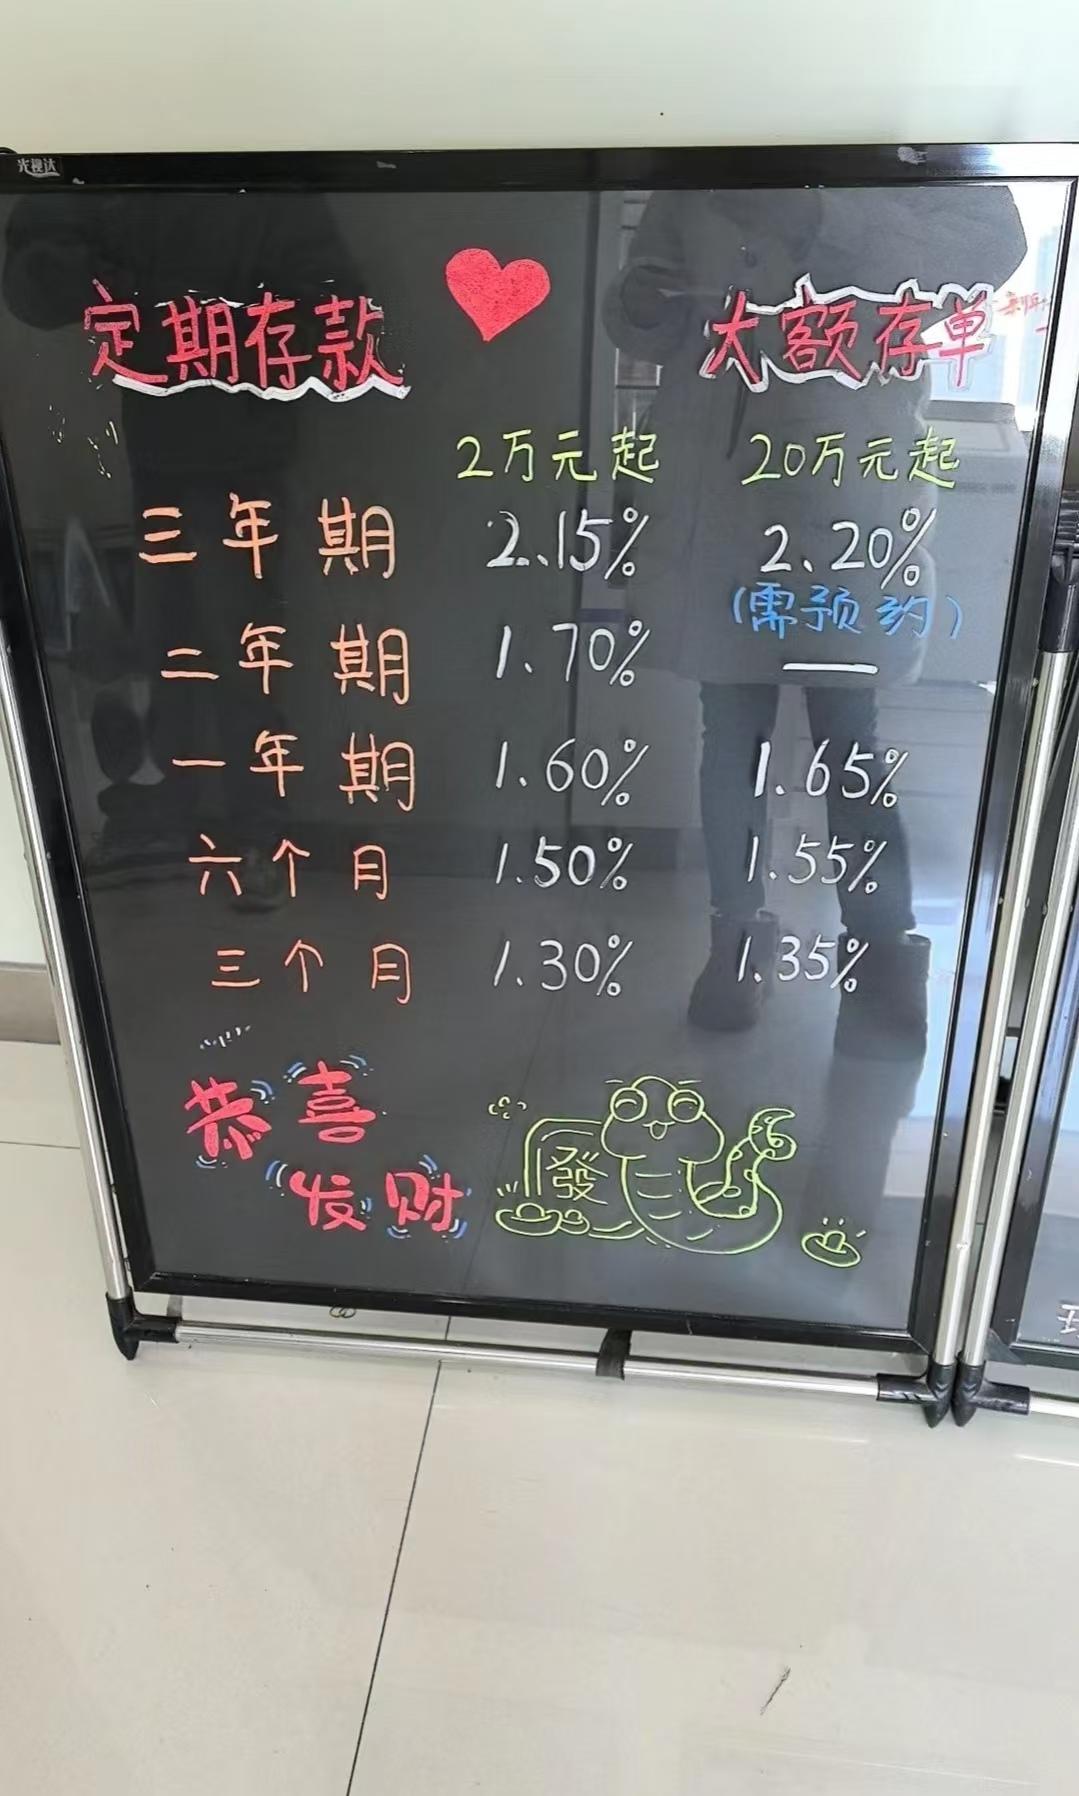 光视达
定期存款 大额存单
2万元起 20万元起
三年期 2.15% 2.20%
(需预约)
二年期 1.70% —
一年期 1.60% 1.65%
六个月 1.50% 1.55%
三个月 1.30% 1.35%
恭喜
发财
發